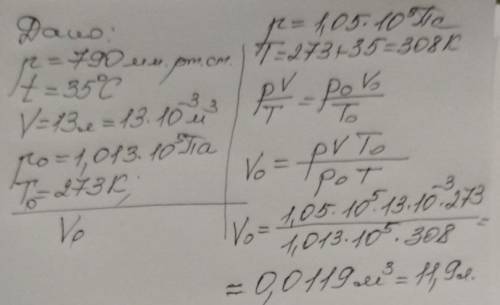 Дано:
p = 790 мм. рт. ст.
t = 35°C
V = 13л = 13·10⁻³м³
p₀ = 1,013·10⁵Па
T₀ = 273К
V₀
p = 1,05·10⁵Па
T = 273+35 = 308К
pV/T = p₀V₀/T₀
V₀ = pVT₀/p₀T
V₀ = 1,05·10⁵·13·10⁻³·273/1,013·10⁵·308 =
≈ 0,0119м³ = 11,9л.